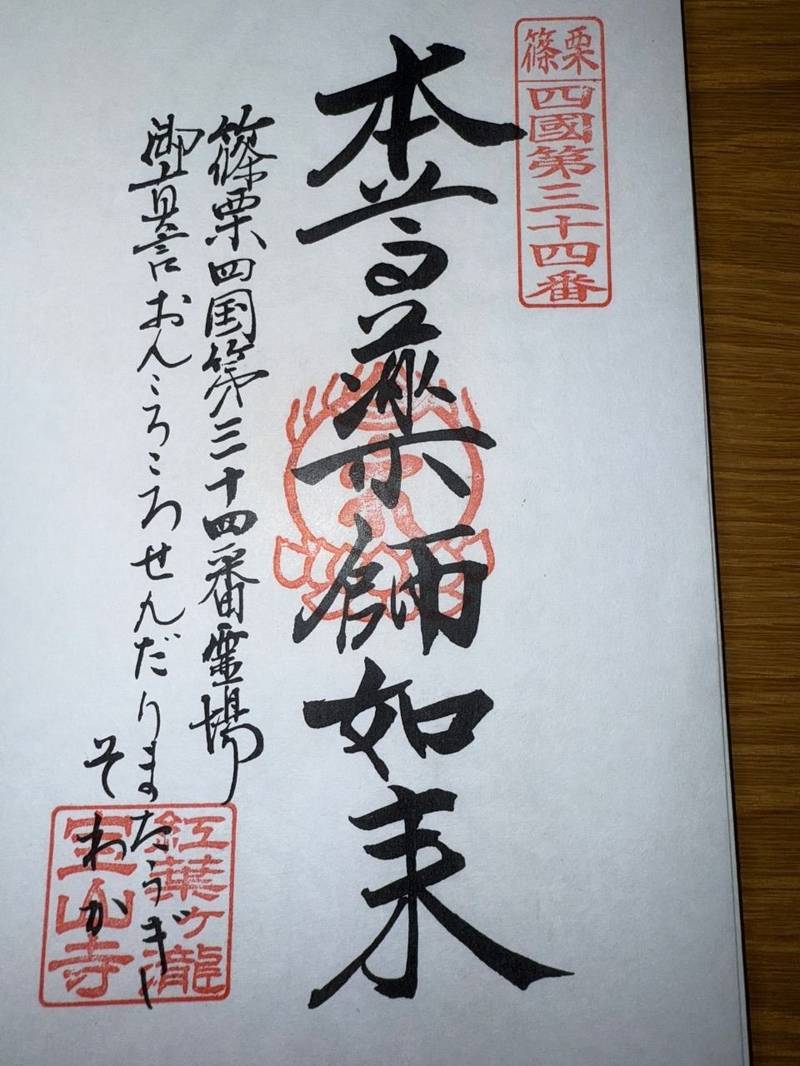 篠栗
四國第三十四番
本尊薬師如来
篠栗四国第三十四番霊場
御真言おんころころせんだりまたうぎ
そわか
紅葉ヶ瀧
宝山寺